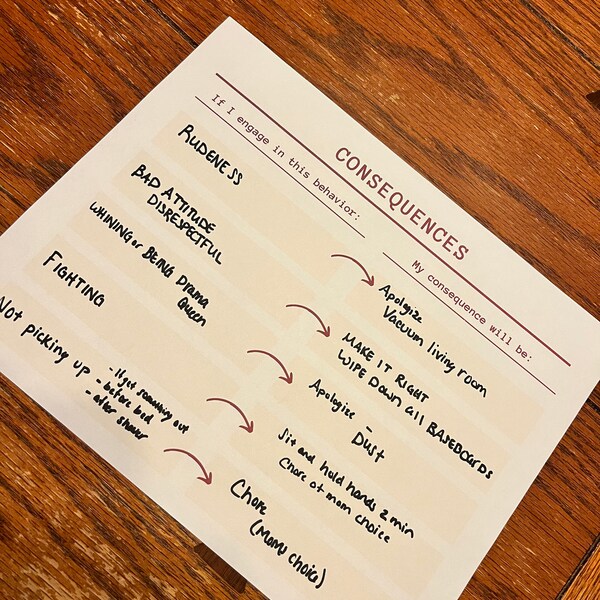 CONSEQUENCES
If I engage in this behavior:
My consequence will be:
RUDENESS
Apologize
Vacuum living room
BAD ATTITUDE
DISRESPECTFUL
MAKE IT RIGHT
WIPE DOWN all BASEBOARDS
WHINING or BEING DRAMA
Queen
Apologize -
DUST
FIGHTING
Sit and hold hands 2 min
Chore of mom choice
Not picking up
- If get something out
- before bed
- after shower
Chore
(Mom choice)